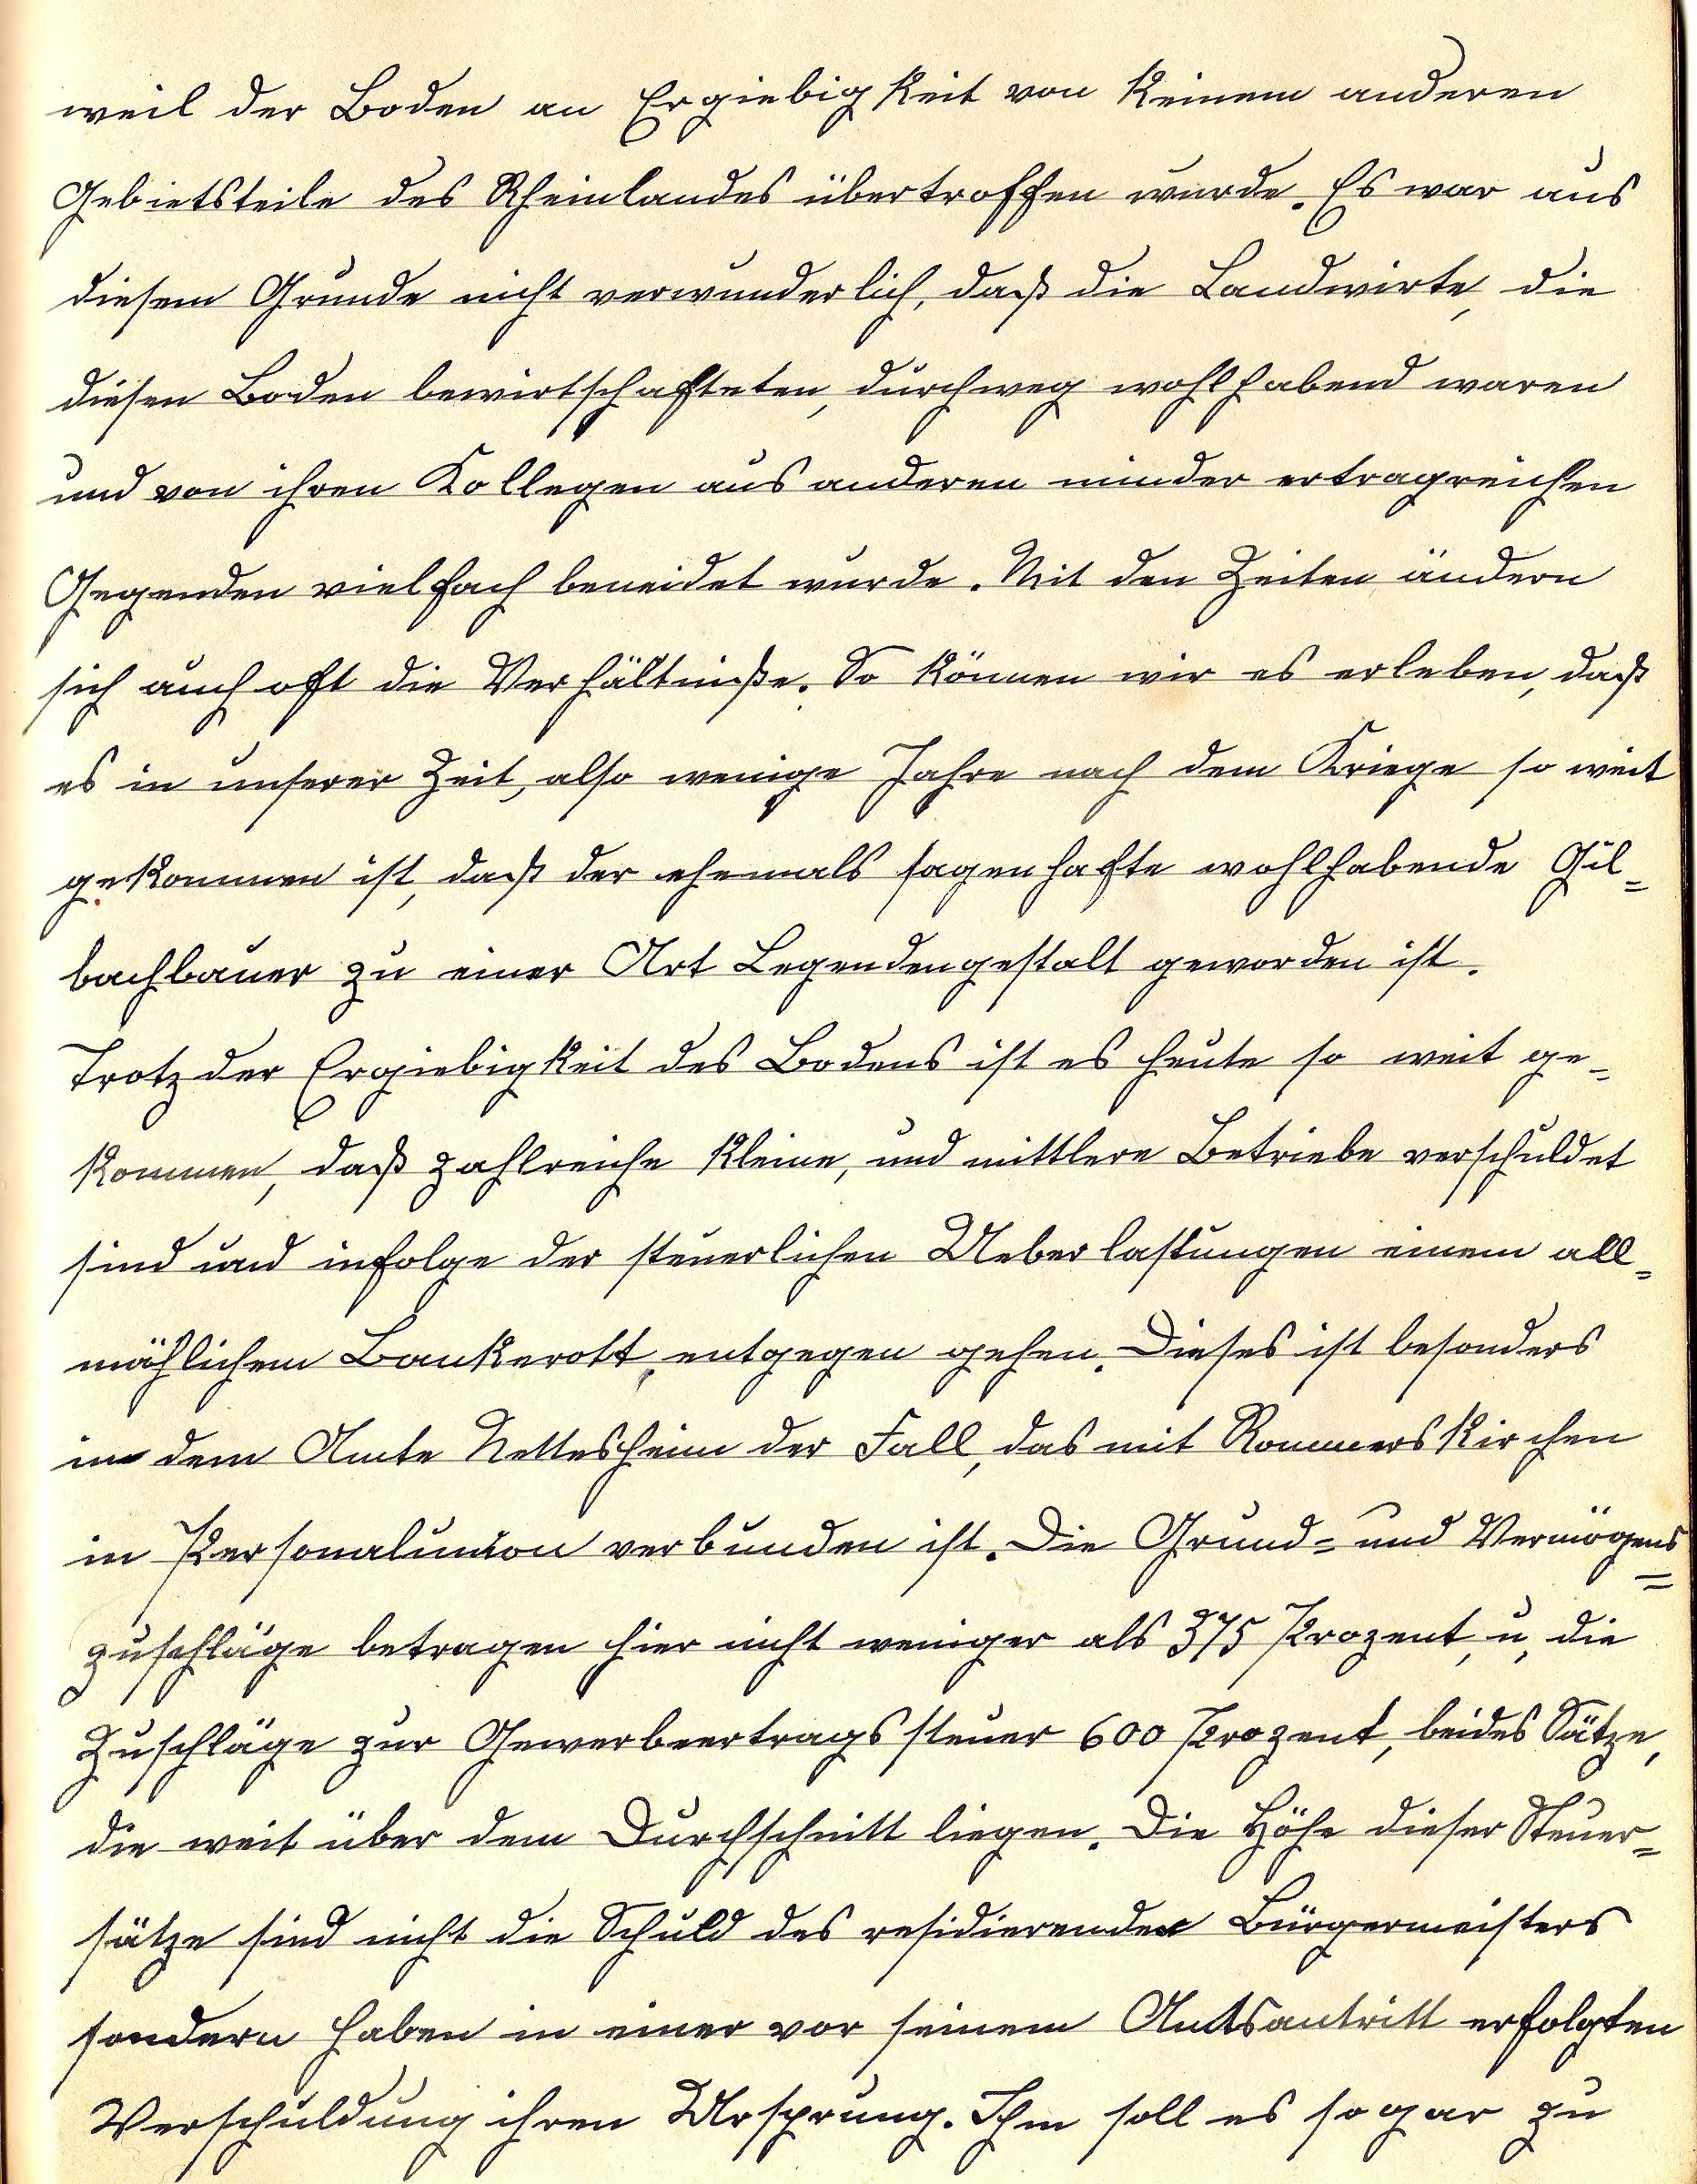 weil der Boden an Ergiebigkeit von keinem anderen
Gebietsteile des Rheinlandes übertroffen wurde. Es war aus
diesem Grunde nicht verwunderlich, daß die Landwirte, die
diesen Boden bewirtschafteten, durchweg wohlhabend waren
und von ihren Kollegen aus anderen minder ertragreichen
Gegenden vielfach beneidet wurde. Mit den Zeiten ändern
sich auch oft die Verhältniße. So können wir es erleben, daß
es in unserer Zeit, also wenige Jahre nach dem Kriege so weit
gekommen ist, daß der ehemals sagenhafte wohlhabende Gil=
bachbauer zu einer Art Legendengestalt geworden ist.
Trotz der Ergiebigkeit des Bodens ist es heute so weit ge=
kommen, daß zahlreiche kleine, und mittlere Betriebe verschuldet
sind und infolge der steuerlichen Ueberlastungen einem all=
mählichem Bankerott, entgegen gehen. Dieses ist besonders
in dem Amte Nettesheim der Fall, das mit Rommerskirchen
in Personalunion verbunden ist. Die Grund= und Vermögens=
zuschläge betragen hier nicht weniger als 375 Prozent, u, die
Zuschläge zur Gewerbeertragssteuer 600 Prozent, beides Sätze,
die weit über dem Durchschnitt liegen. Die Höhe dieser Steuer=
sätze sind nicht die Schuld des residierenden Bürgermeisters
sondern haben in einer vor seinem Amtsantritt erfolgten
Verschuldung ihren Ursprung. Ihm soll es sogar zu